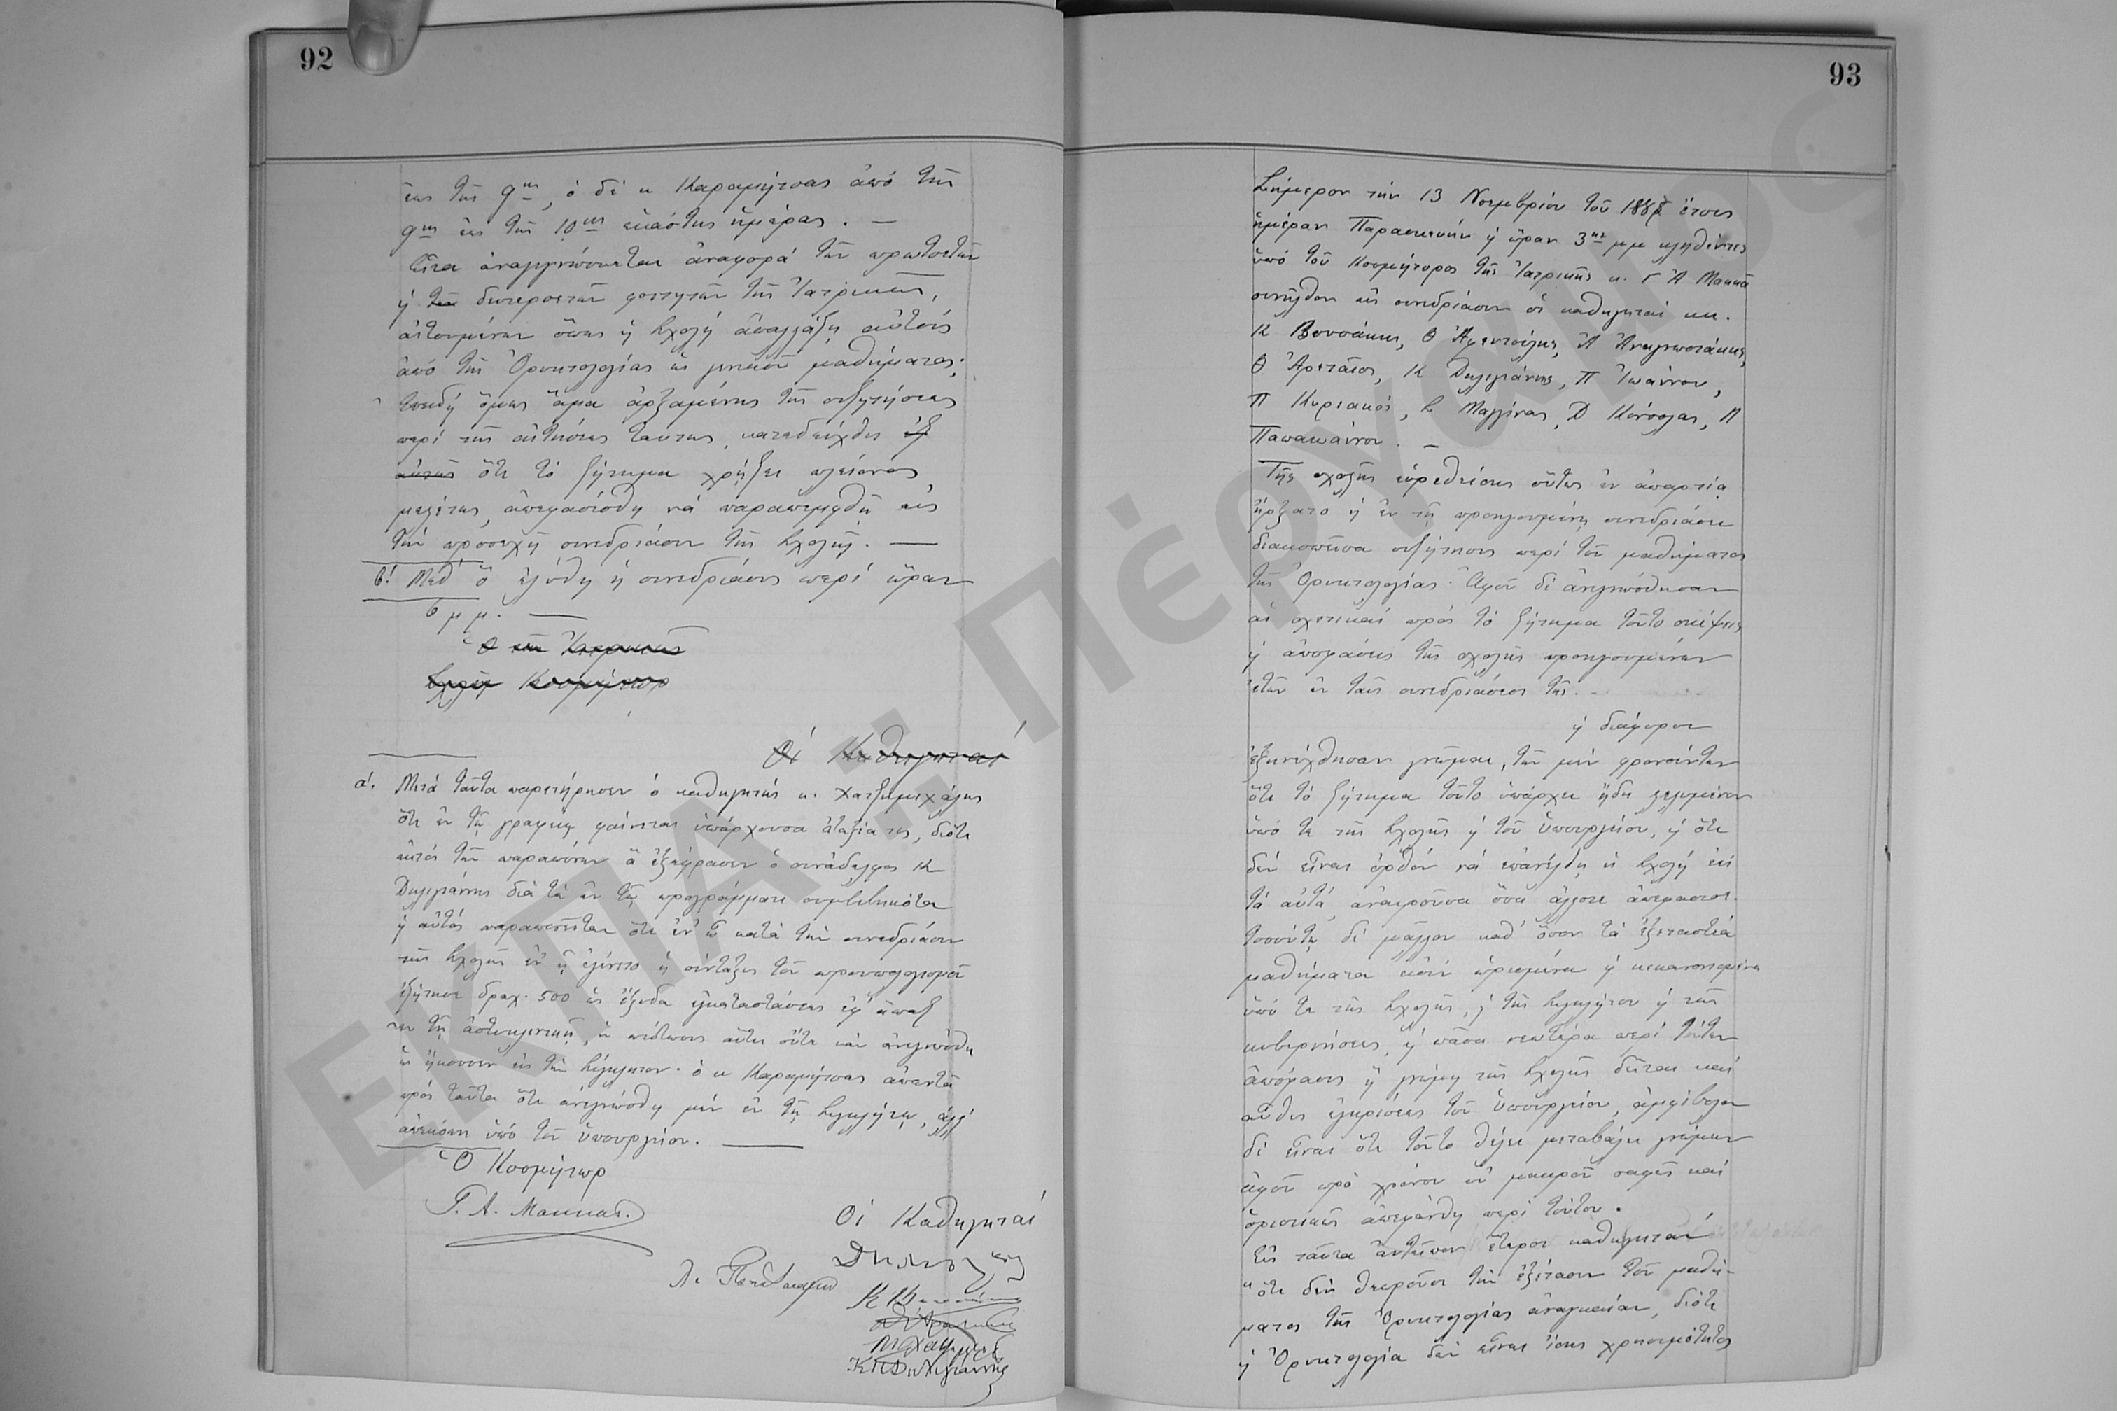 92
ἕως τῆς 9ης, ὁ δὲ κ Καραμήτσας ἀπὸ τῆς
9ης ἕως τῆς 10ης ἑκάστης ἡμέρας. —
Εἶτα ἀναγιγνώσκεται ἀναφορὰ τῶν πρωτοετῶν
ἢ τῶν δευτεροετῶν φοιτητῶν τῆς Ἰατρικῆς,
αἰτουμένων ὅπως ἡ Σχολὴ ἀπαλλάξῃ αὐτοὺς
ἀπὸ τῆς Ὀρυκτολογίας ὡς γενικοῦ μαθήματος·
ἐπειδὴ ὅμως ἅμα ἀρξαμένης τῆς συζητήσεως
περὶ τῆς αἰτήσεως ταύτης κατεδείχθη ἐξ
αὐτῆς ὅτι τὸ ζήτημα χρῄζει πλείονος
μελέτης, ἀπεφασίσθη νὰ παραπεμφθῇ εἰς
τὴν προσεχῆ συνεδρίασιν τῆς Σχολῆς. —
β'. Μεθ' ὃ ἐλύθη ἡ συνεδρίασις περὶ ὥραν
6 μ μ. —
Ὁ τῆς Ἰατρικῆς
Σχολῆς Κοσμήτωρ
Οἱ Καθηγηταί
α'. Μετὰ ταῦτα παρετήρησεν ὁ καθηγητὴς κ. Χατζημιχάλης
ὅτι ἐν τῇ γραφικῇ φαίνεται ὑπάρχουσα ἀταξία τις, διότι
ἐκτὸς τῶν παραπόνων ἃ ἐξέφρασεν ὁ συνάδελφος Κ
Δηλιγιάννης διὰ τὰ ἐν τῷ προγράμματι συμβεβηκότα
ἢ αὐτὸς παραπονεῖται ὅτι ἐν ᾧ κατὰ τὴν συνεδρίασιν
τῆς Σχολῆς ἐν ᾗ ἐγένετο ἡ σύνταξις τοῦ προϋπολογισμοῦ
ἐζήτησε δραχ. 500 ὡς ἔξοδα ἐγκαταστάσεως ἐφ' ἅπαξ
ἐν τῇ ἀστυκλινικῇ, ἡ πίστωσις αὕτη οὔτε κἂν ἀνεγνώσθη
ὡς ἤκουσεν εἰς τὴν Σύγκλητον· ὁ κ Καραμήτσας ἀπαντᾷ
πρὸς ταῦτα ὅτι ἀνεγνώσθη μὲν ἐν τῇ Συγκλήτῳ, ἀλλ'
ἀπεκόπη ὑπὸ τοῦ ὑπουργείου. —
Ὁ Κοσμήτωρ
Γ. Α. Μακκας.
Οἱ Καθηγηταί
Κ Π Δηλιγιάννης
93
Σήμερον τὴν 13 Νοεμβρίου τοῦ ἔτους
ἡμέραν Παρασκευὴν ἢ ὥραν 3ην μμ κληθέντες
ὑπὸ τοῦ Κοσμήτορος τῆς Ἰατρικῆς κ. Γ Α Μακκᾶ
συνῆλθον εἰς συνεδρίασιν οἱ καθηγηταὶ κκ.
Κ Βουσάκης, Θ Ἀφεντούλης, Ἀ Ἀναγνωστάκης,
Θ Ἀρεταῖος, Κ Δηλιγιάννης, Π Ἰωάννου,
Π Κυριακός, Σ Μαγγίνας, Δ Κόκκολας, Λ
Παπαϊωάννου. —
Τῆς σχολῆς εὑρεθείσης οὕτως ἐν ἀπαρτίᾳ
ἤρξατο ἡ ἐν τῇ προηγουμένῃ συνεδριάσει
διακοπεῖσα συζήτησις περὶ τοῦ μαθήματος
τῆς Ὀρυκτολογίας. Ἀφοῦ δὲ ἀνεγνώσθησαν
αἱ σχετικαὶ πρὸς τὸ ζήτημα τοῦτο σκέψεις
ἢ ἀποφάσεις τῆς σχολῆς προηγουμένων
ἐτῶν ἐν ταῖς συνεδριάσεσι τῆς. –
ἢ διάφοροι
ἐξηνέχθησαν γνῶμαι, τῶν μὲν φρονούντων
ὅτι τὸ ζήτημα τοῦτο ὑπάρχει ἤδη λελυμένον
ὑπό τε τῆς Σχολῆς ἢ τοῦ Ὑπουργείου, ἢ ὅτι
δὲν εἶναι ὀρθὸν νὰ ἐπανέλθῃ ἡ Σχολὴ εἰς
τὰ αὐτὰ ἀναιροῦσα ὅσα ἄλλοτε ἀπεφάσισε.
τοσούτῳ δὲ μᾶλλον καθ' ὅσον τὰ ἐξεταστέα
μαθήματα εἰσὶν ὡρισμένα ἢ κεκανονισμένα
ὑπό τε τῆς Σχολῆς, ἢ τῆς Συγκλήτου ἢ τῆς
κυβερνήσεως, ἢ πᾶσα νεωτέρα περὶ τούτων
ἀπόφασις ἢ γνώμη τῆς Σχολῆς δεῖται καὶ
αὖθις ἐγκρίσεως τοῦ Ὑπουργείου, ἀμφίβολον
δὲ εἶναι ὅτι τοῦτο θέλει μεταβάλει γνώμην
ἀφοῦ πρὸ χρόνου οὐ μακροῦ σαφῶς καὶ
ὁριστικῶς ἀπεφάνθη περὶ τούτου.
Εἰς ταῦτα ἀντεῖπον ἕτεροι καθηγηταί
ὅτι δὲν θεωροῦσι τὴν ἐξέτασιν τοῦ μαθή-
ματος τῆς Ὀρυκτολογίας ἀναγκαίαν, διότι
ἡ Ὀρυκτολογία δὲν εἶναι ἴσης χρησιμότητος